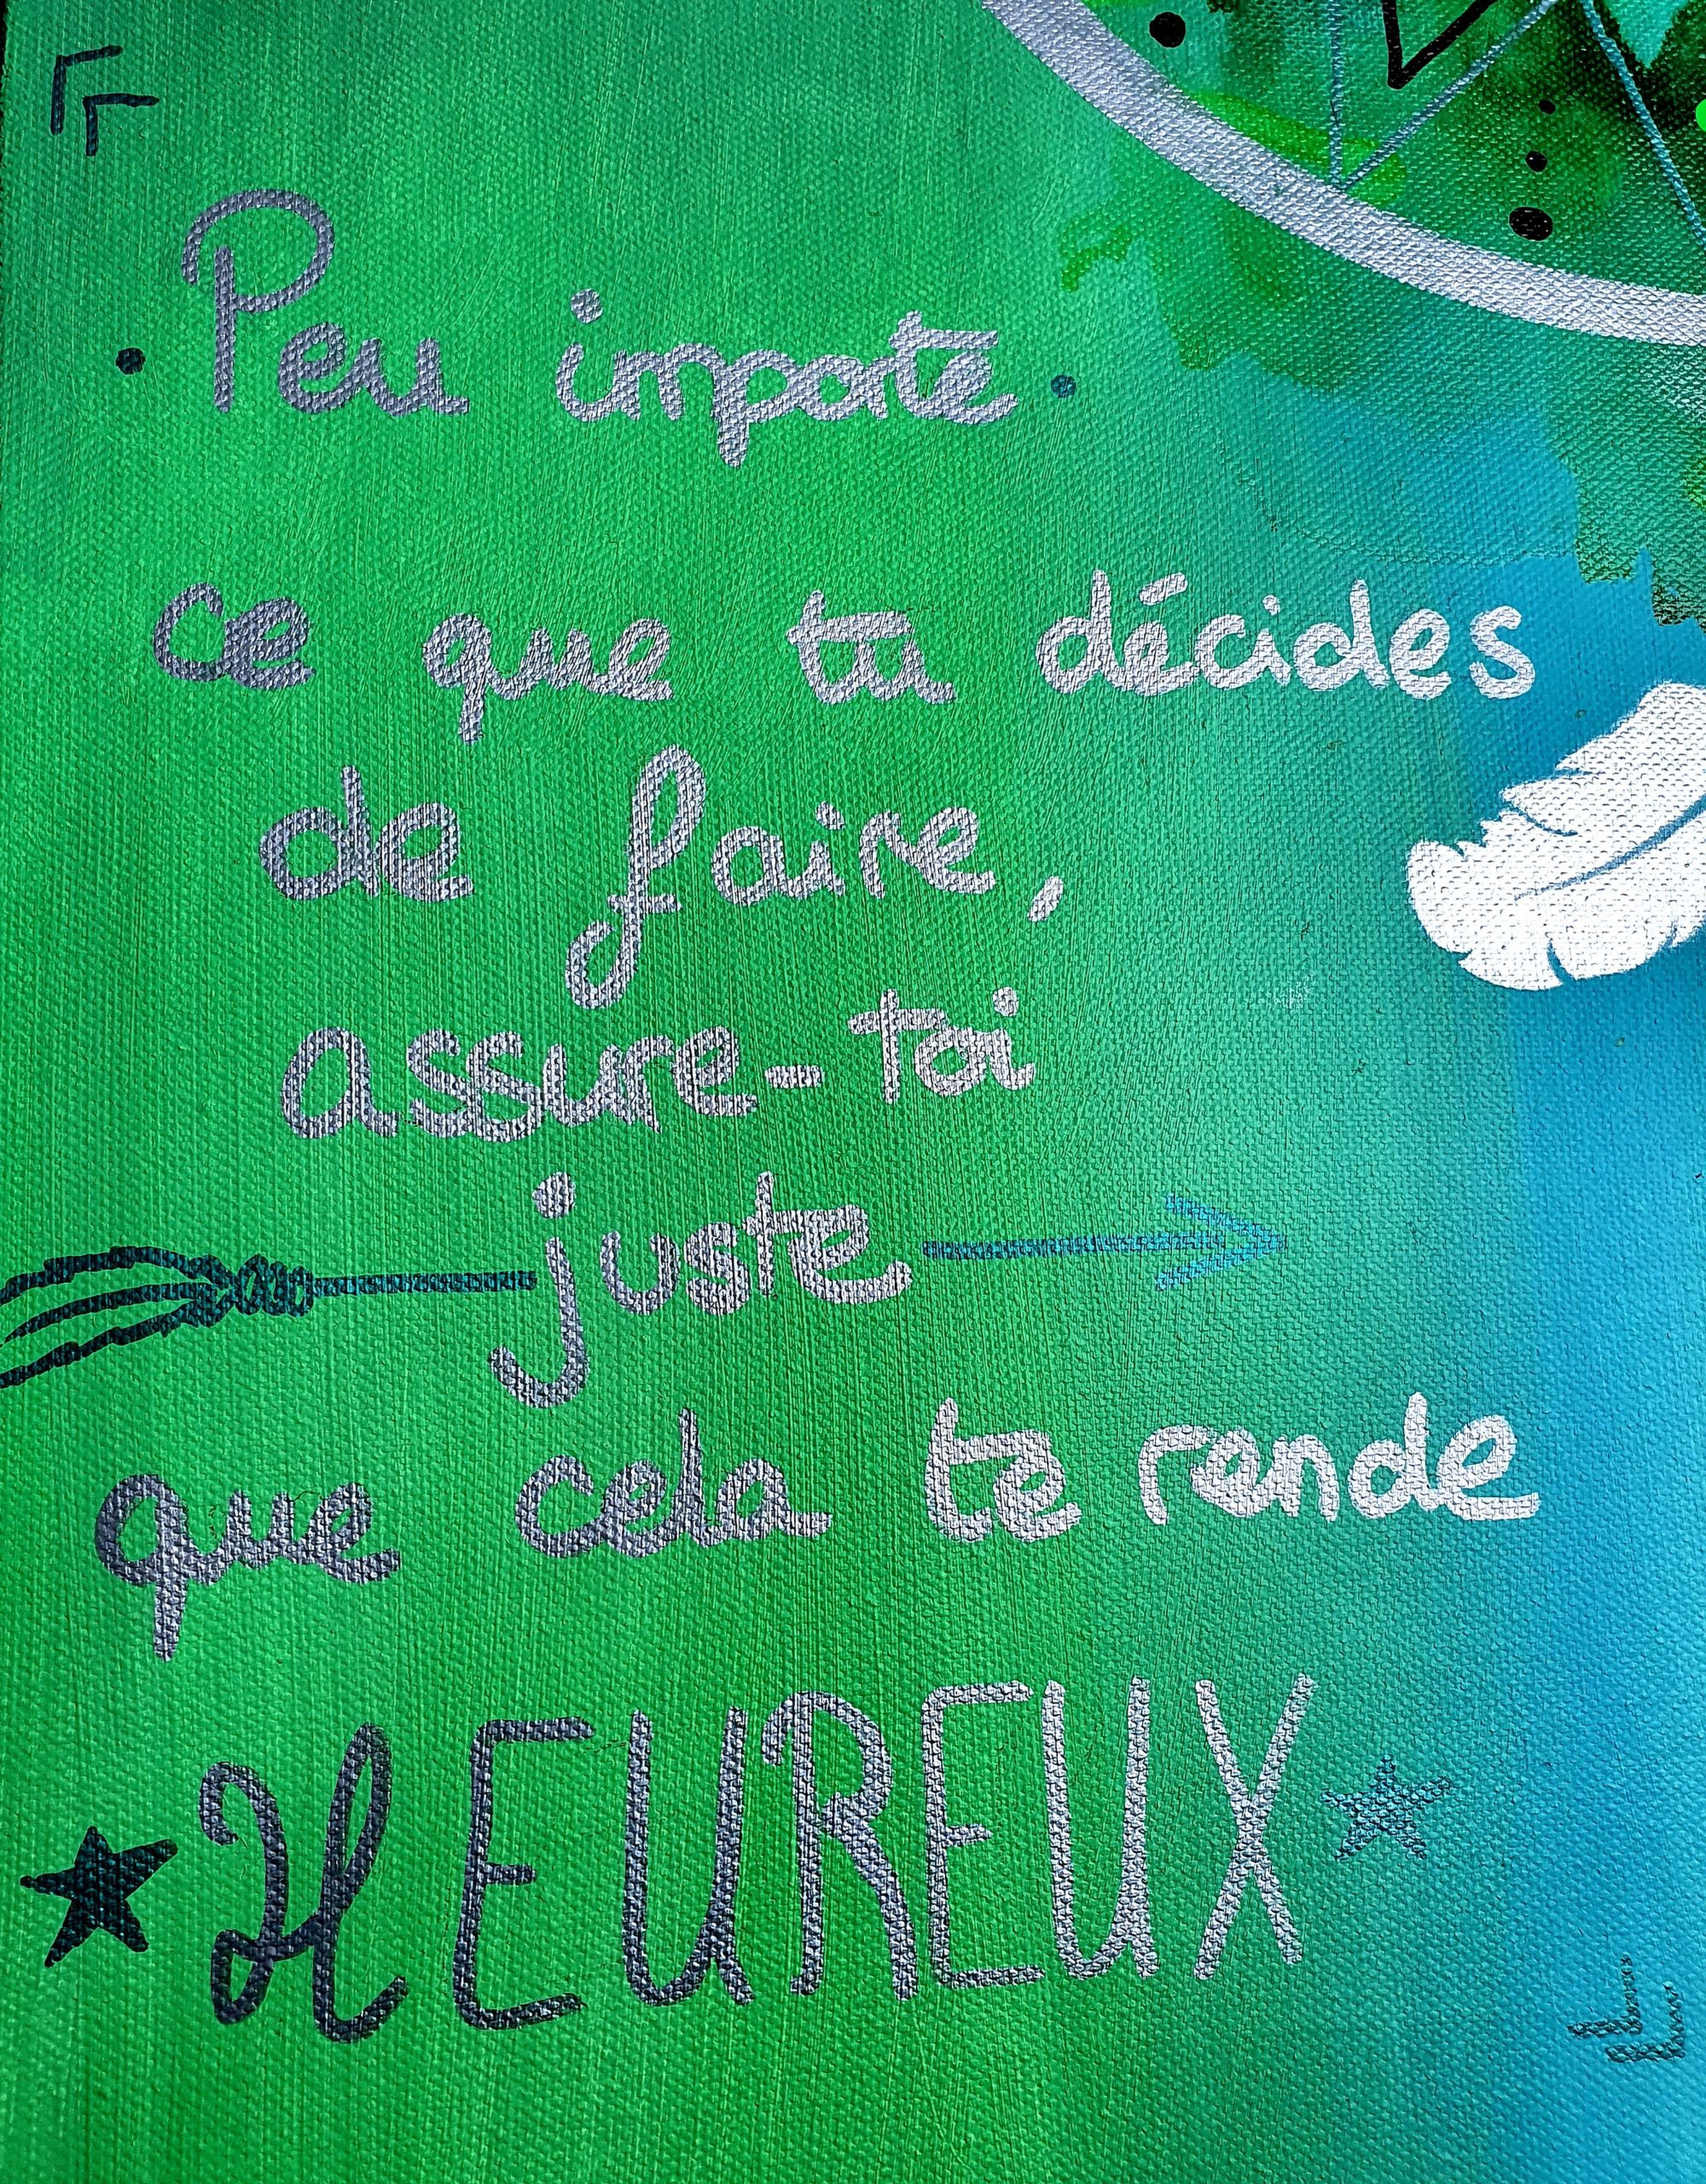 Peu importe
ce que tu décides
de faire,
assure-toi
juste
que cela te rende
HEUREUX